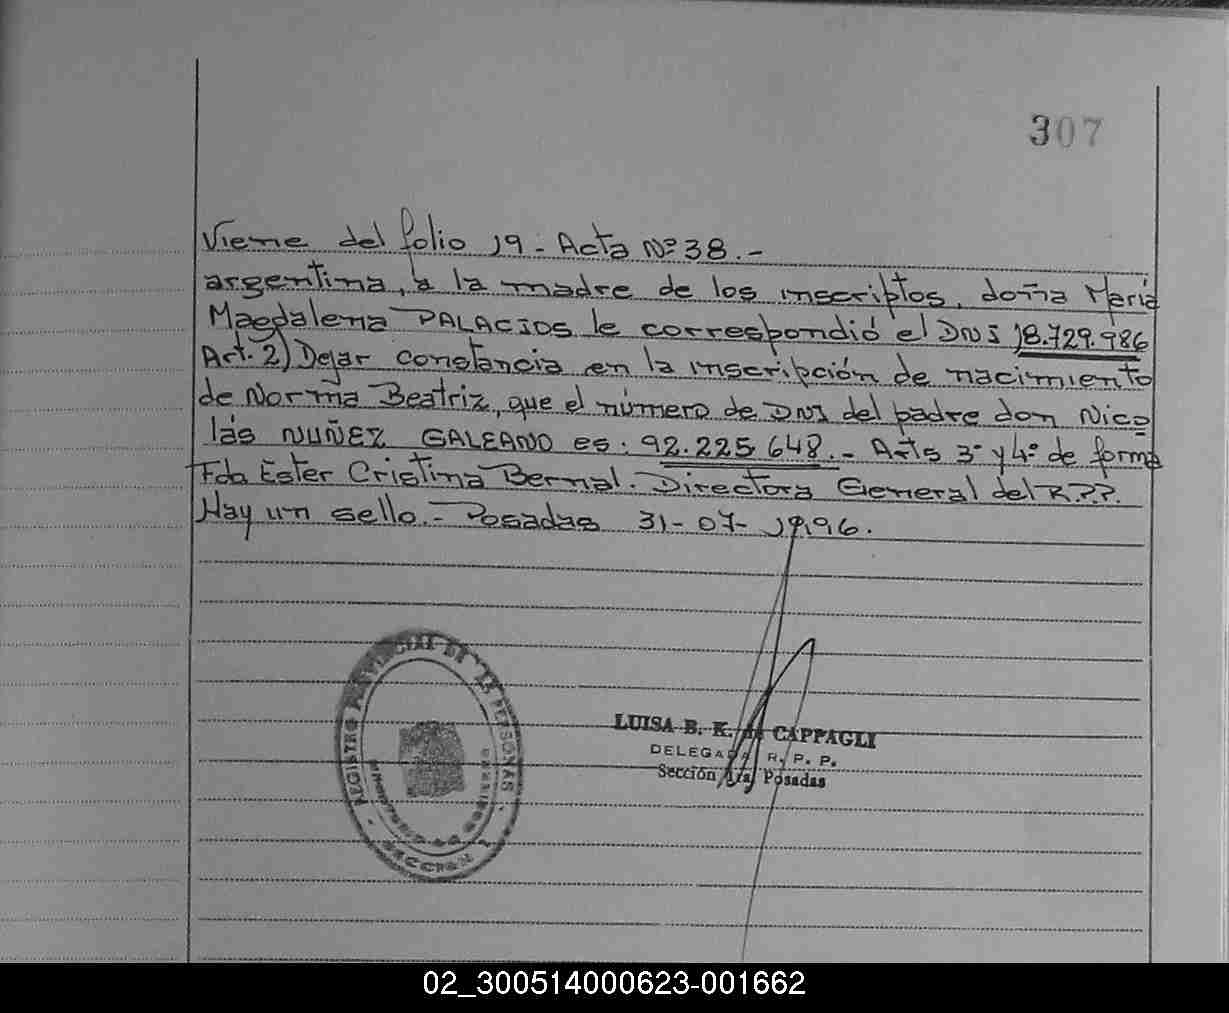 307
Viene del folio 19 - Acta Nº 38.-
argentina, a la madre de los inscriptos, doña María
Magdalena PALACIOS le correspondió el DNI 18.729.986
Art. 2) Dejar constancia en la inscripción de nacimiento
de Norma Beatriz, que el número de DNI del padre don Nico
lás NUÑEZ GALEANO es: 92.225.648.- Arts 3º y 4º de forma
Fdo Ester Cristina Bernal. Directora General del R.P.P.
Hay un sello.- Posadas 31-07-1996.
REGISTRO PROVINCIAL DE LAS PERSONAS
SECCION
LUISA B. K. de CAPPAGLI
DELEGADA R. P. P.
Sección 1ra. Posadas
02_300514000623-001662